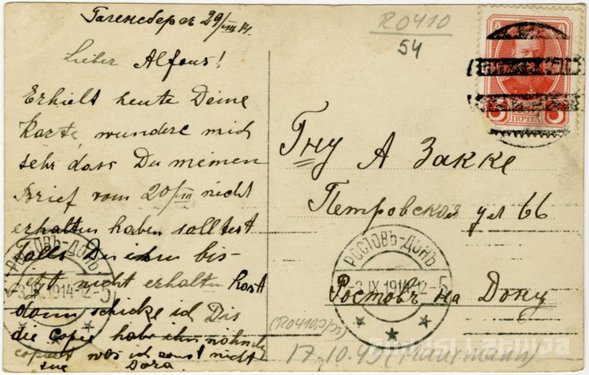 Гагенсберг 29/VIII 14.
Lieber Alfons!
Erhielt heute Deine
Karte wundere mich
sehr dass Du meinen
Brief vom 20/VIII nicht
erhalten haben solltest
Falls Du ihn bis-
jetzt nicht erhalten hast
dann schicke ich Dir
die Copie habe ihn
copiert was ich sonst nicht
tue Dora
R0410
54
Гну А Закке
Петровская ул 66
Ростовъ на Дону
РОСТОВЪ-ДОНЪ
3.IX.1914-12-5
РОСТОВЪ-ДОНЪ
3.IX.1914-12-5
17.10.95 (Muurmann)